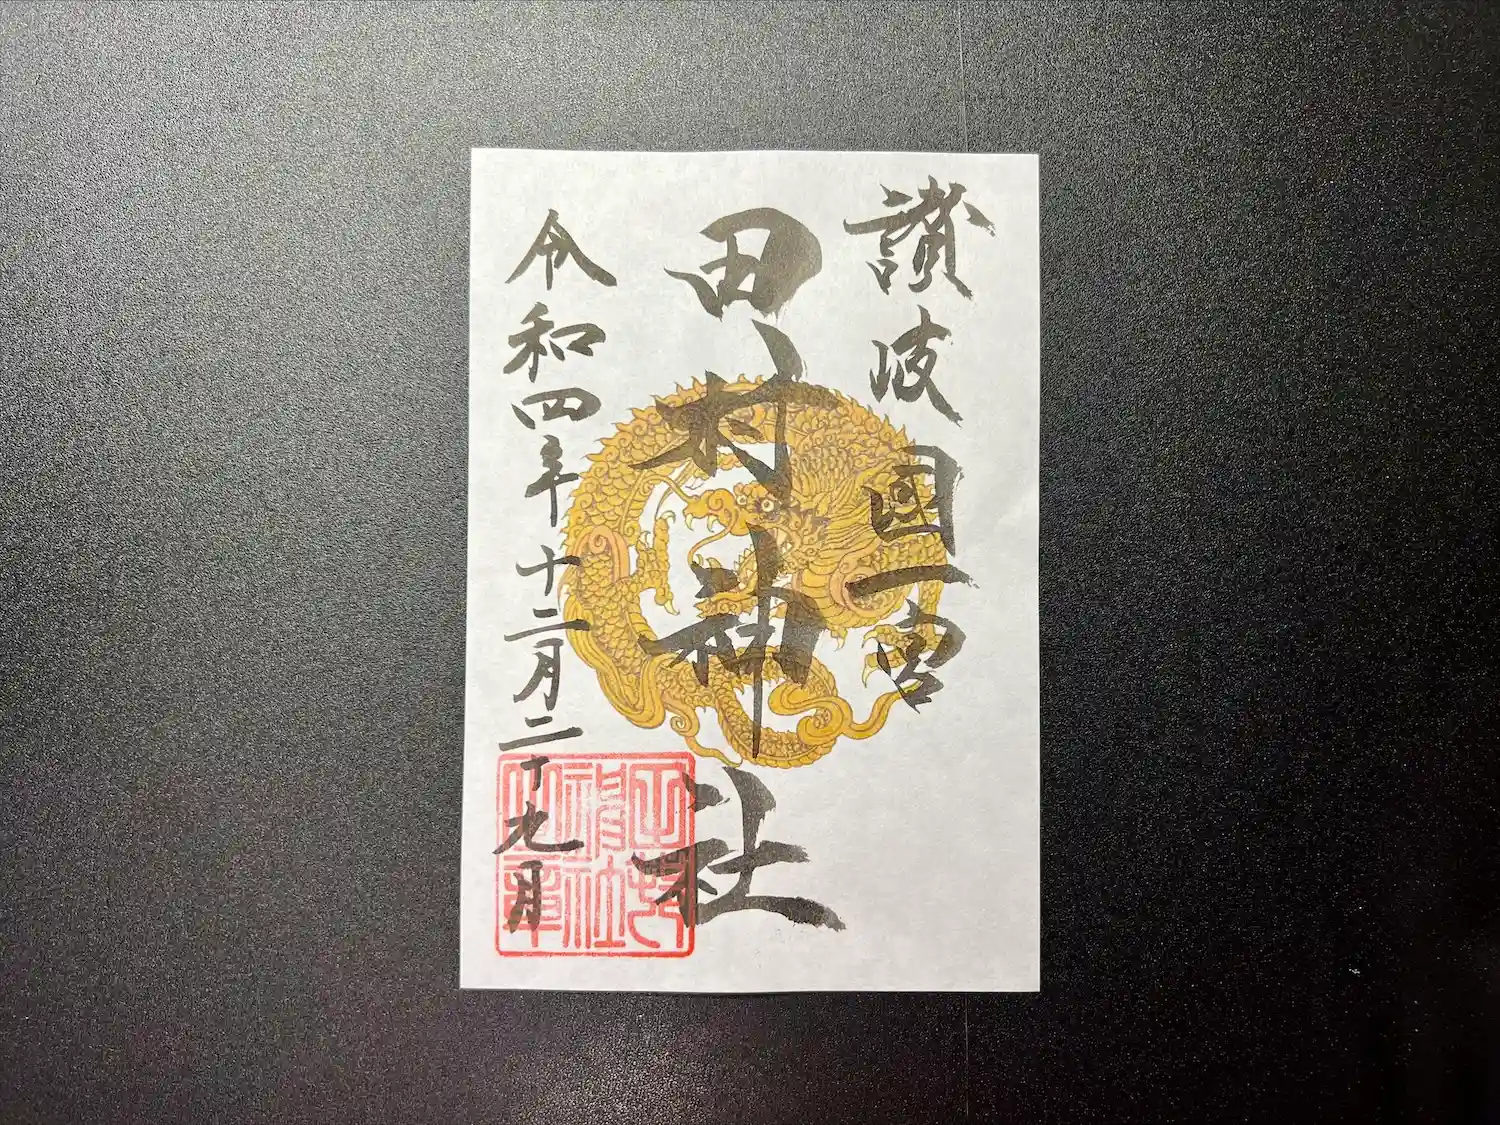 讃岐國一宮
田村神社
令和四年十二月二十九日